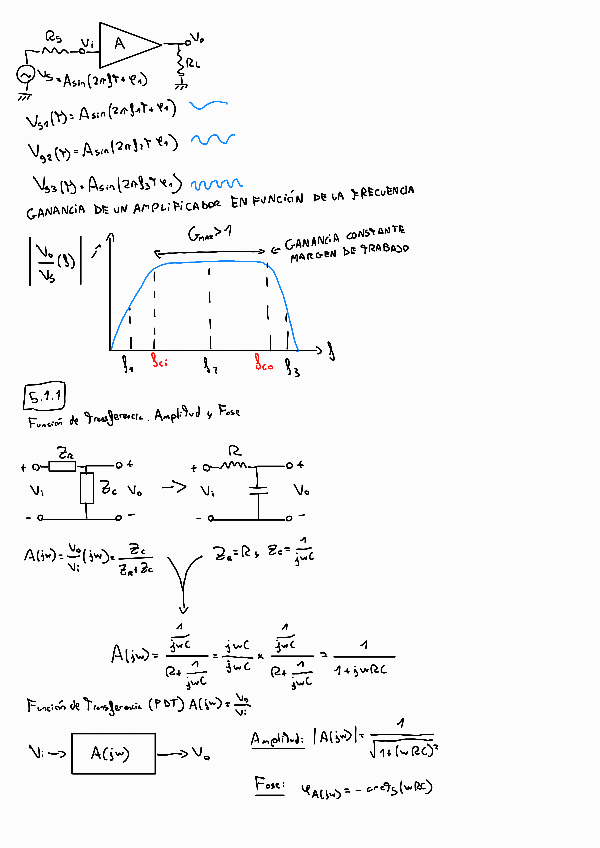 Rs Vi A Vo
RL
Vs = A sin(2πft + φ1)
Vs1(t) = A sin(2πf1t + φ1)
Vs2(t) = A sin(2πf2t φ1)
Vs3(t) = A sin(2πf3t φ1)
GANANCIA DE UN AMPLIFICADOR EN FUNCIÓN DE LA FRECUENCIA
|Vo/Vs (f)|
GMAX > 1
← GANANCIA CONSTANTE
MARGEN DE TRABAJO
f1 fci f2 fco f3 f
5.1.1
Función de Transferencia. Amplitud y Fase
+ ZR + + R +
Vi ZC Vo → Vi Vo
- - - -
A(jw) = Vo/Vi (jw) = ZC/(ZR + ZC)
ZR = R y ZC = 1/jwC
A(jw) = (1/jwC)/(R + 1/jwC) = jwC/jwC × (1/jwC)/(R + 1/jwC) = 1/(1 + jwRC)
Función de Transferencia (FDT) A(jw) = Vo/Vi
Vi → A(jw) → Vo
Amplitud: |A(jw)| = 1/√(1 + (wRC)²)
Fase: φA(jw) = - arctg(wRC)